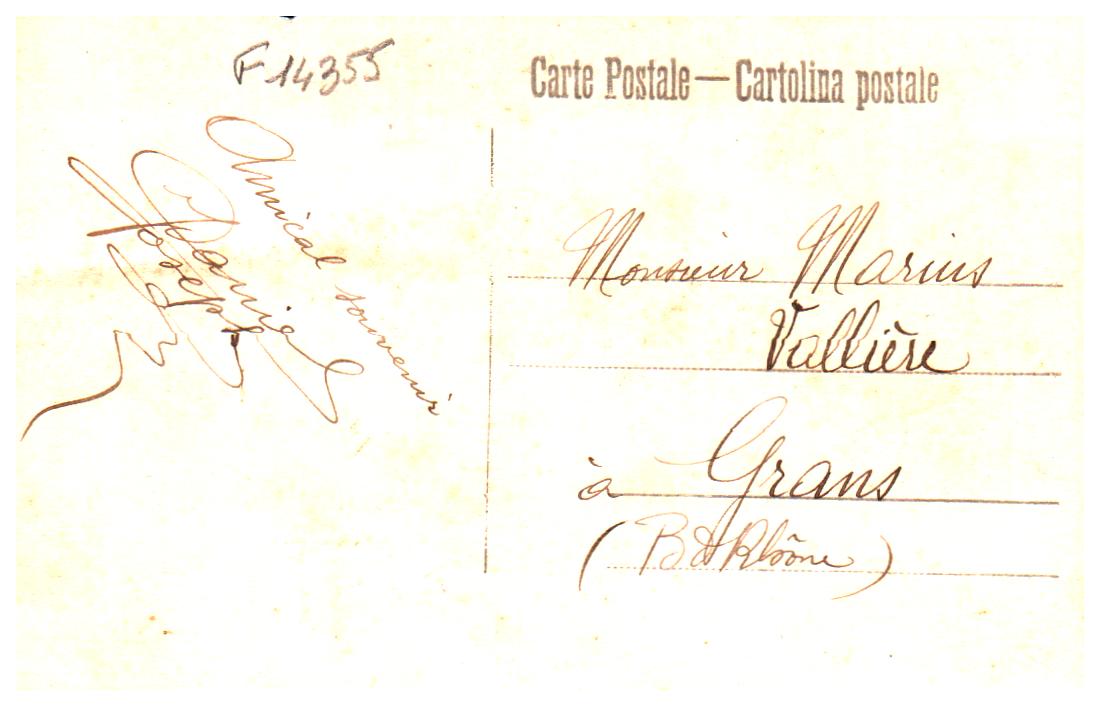 F 14355
Carte Postale — Cartolina postale
Amical souvenir
Daniel
Joseph
Monsieur Marius
Vallière
à Grans
(B d Rhône)